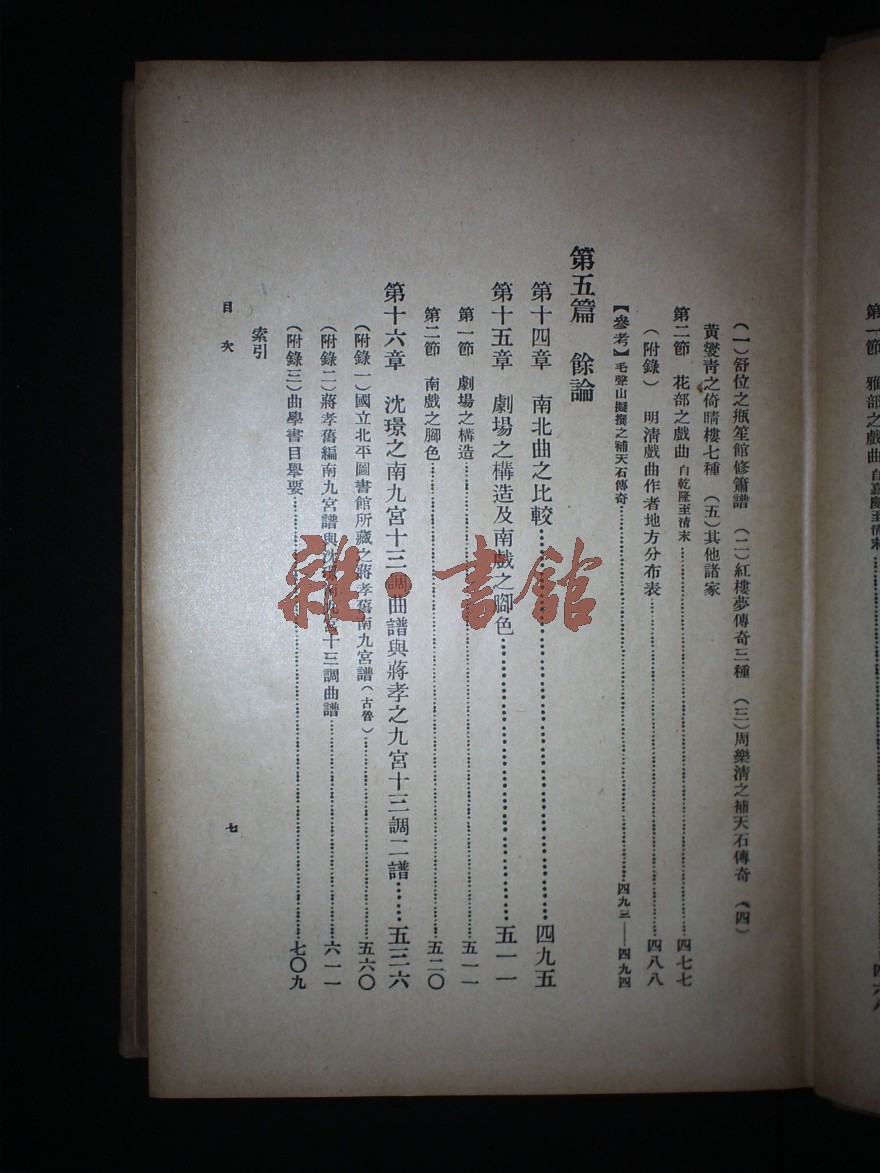 第一節　雅部之戲曲　自嘉慶至清末
四六八
（一）舒位之瓶笙館修簫譜　（二）紅樓夢傳奇三種　（三）周樂清之補天石傳奇　（四）
黃燮青之倚晴樓七種　（五）其他諸家
第二節　花部之戲曲　自乾隆至清末…………四七七
（附錄）　明清戲曲作者地方分布表…………四八八
【參考】毛聲山擬撰之補天石傳奇…………四九三——四九四
第五篇　餘論
第十四章　南北曲之比較…………四九五
第十五章　劇場之構造及南戲之腳色…………五一一
第一節　劇場之構造…………五一一
第二節　南戲之腳色…………五二〇
第十六章　沈璟之南九宮十三調曲譜與蔣孝之九宮十三調二譜……五三六
（附錄一）國立北平圖書館所藏之蔣孝舊南九宮譜（古魯）…………五六〇
（附錄二）蔣孝舊編南九宮譜與沈璟南九宮十三調曲譜…………六一一
（附錄三）曲學書目舉要…………七〇九
索引
目次
七
雜·書館